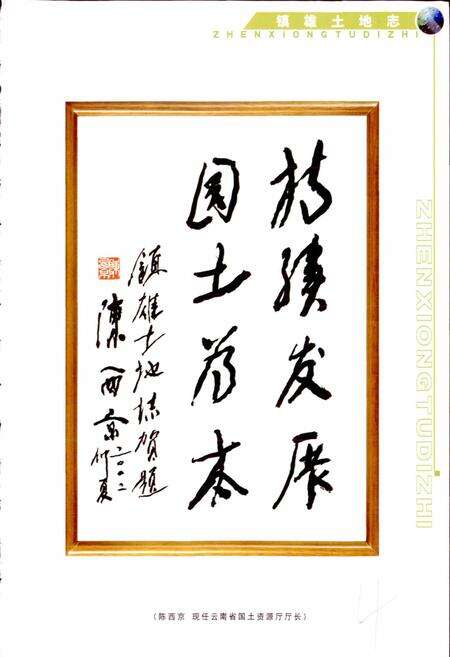 镇雄土地志
ZHENXIONGTUDIZHI
持续发展
国土为本
镇雄土地志贺题
陈西京
二〇〇二仲夏
ZHENXIONGTUDIZHI
(陈西京 现任云南省国土资源厅厅长)